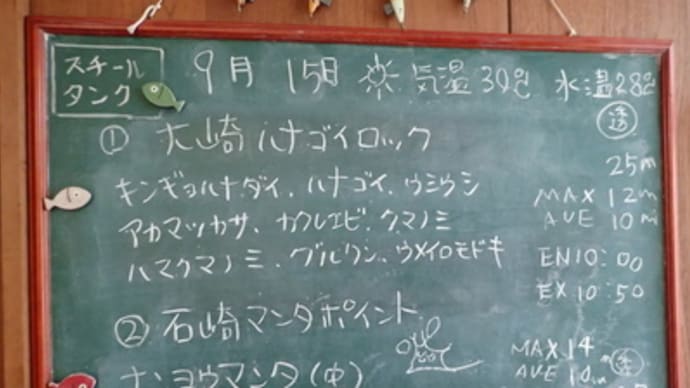 スチール
タンク
9月 15日 ☀ 気温30℃ 水温28℃
① 大崎ハナゴイロック
透
25m
キンギョハナダイ、ハナゴイ、ウミウシ
MAX 12m
アカマツカサ、カクレエビ、クマノミ
AVE 10m
ハマクマノミ、グルクン、ウメイロモドキ
EN10:00
EX10:50
② 石崎マンタポイント
MAX 14m
透
ナンヨウマンタ(中)
AVE 10m